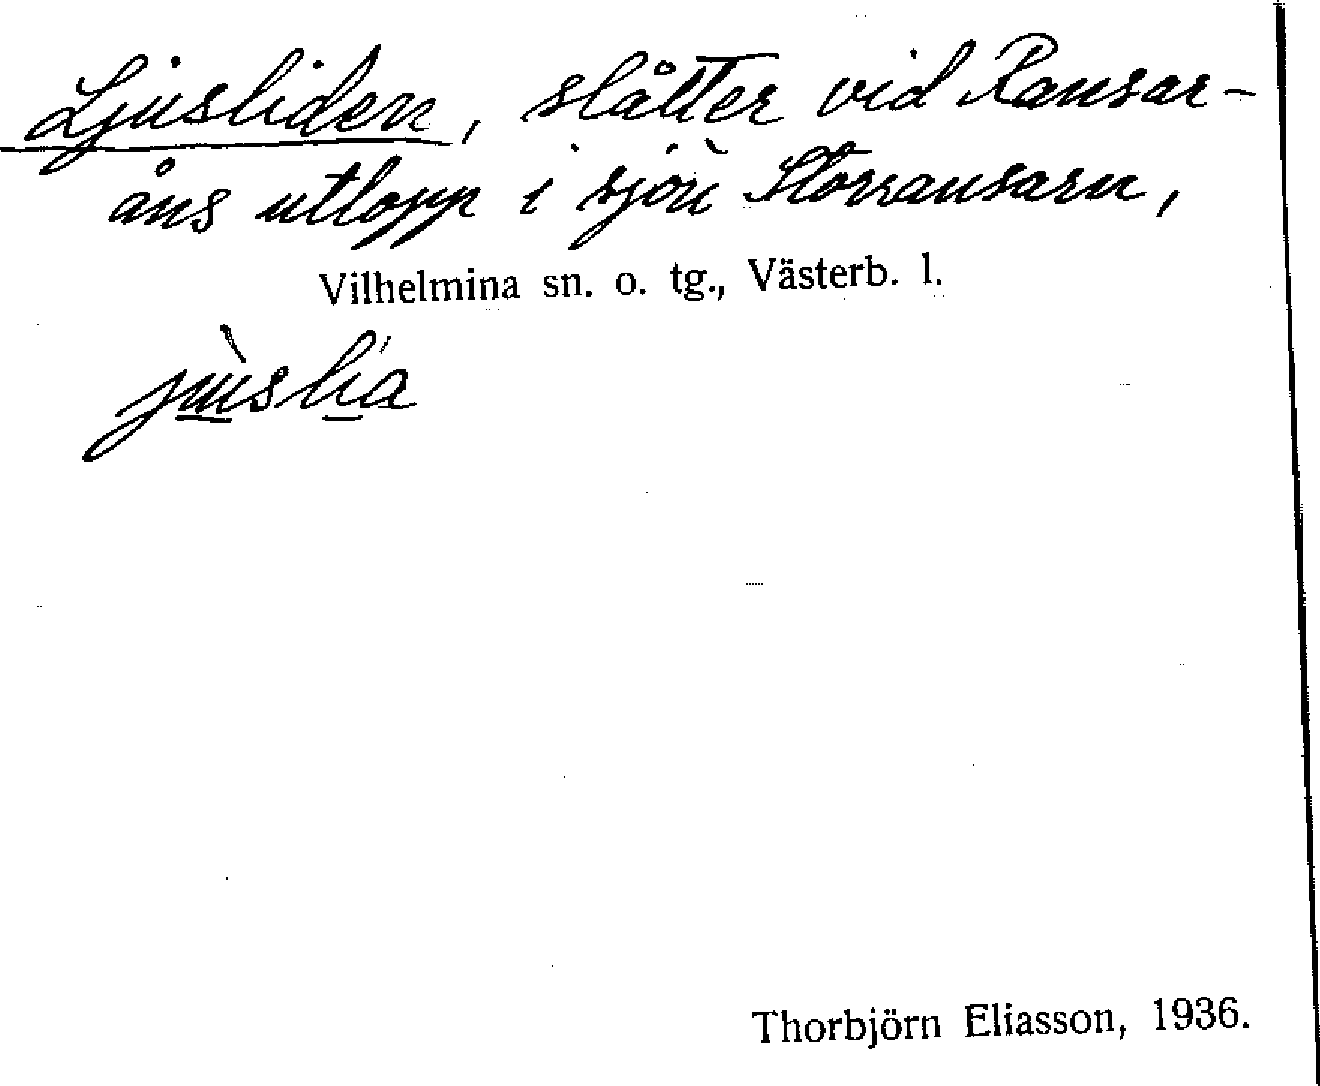 Ljusliden, slåtter vid Ransar-
åns utlopp i sjön Storransarn,
Vilhelmina sn. o. tg., Västerb. l.
jùslía
Thorbjörn Eliasson, 1936.